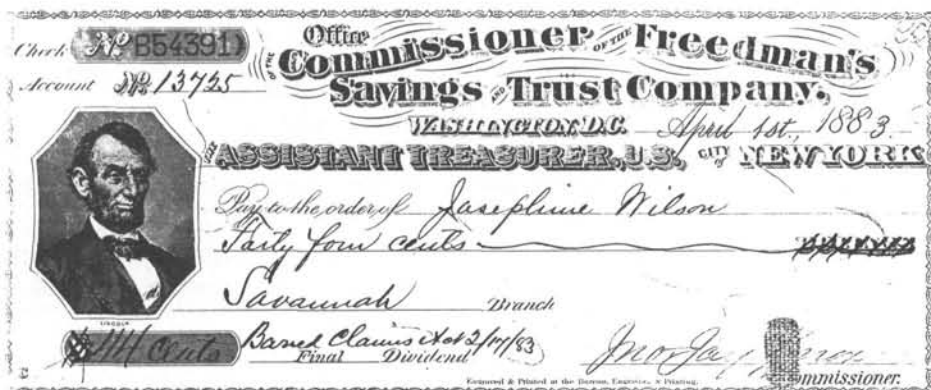 Check No B54391
Office
OF THE Commissioner OF THE Freedman's
Account No 13725
Savings AND Trust Company.
WASHINGTON, D.C. April 1st, 1883.
ASSISTANT TREASURER, U.S., CITY of NEW YORK
Pay to the order of Josephine Wilson
Forty four cents
Savannah Branch
LINCOLN
$ 44/ cents Barred Claims Act 2/17/83
Final Dividend
Jno Jay Knox
Commissioner.
Engraved & Printed at the Bureau, Engraving & Printing.